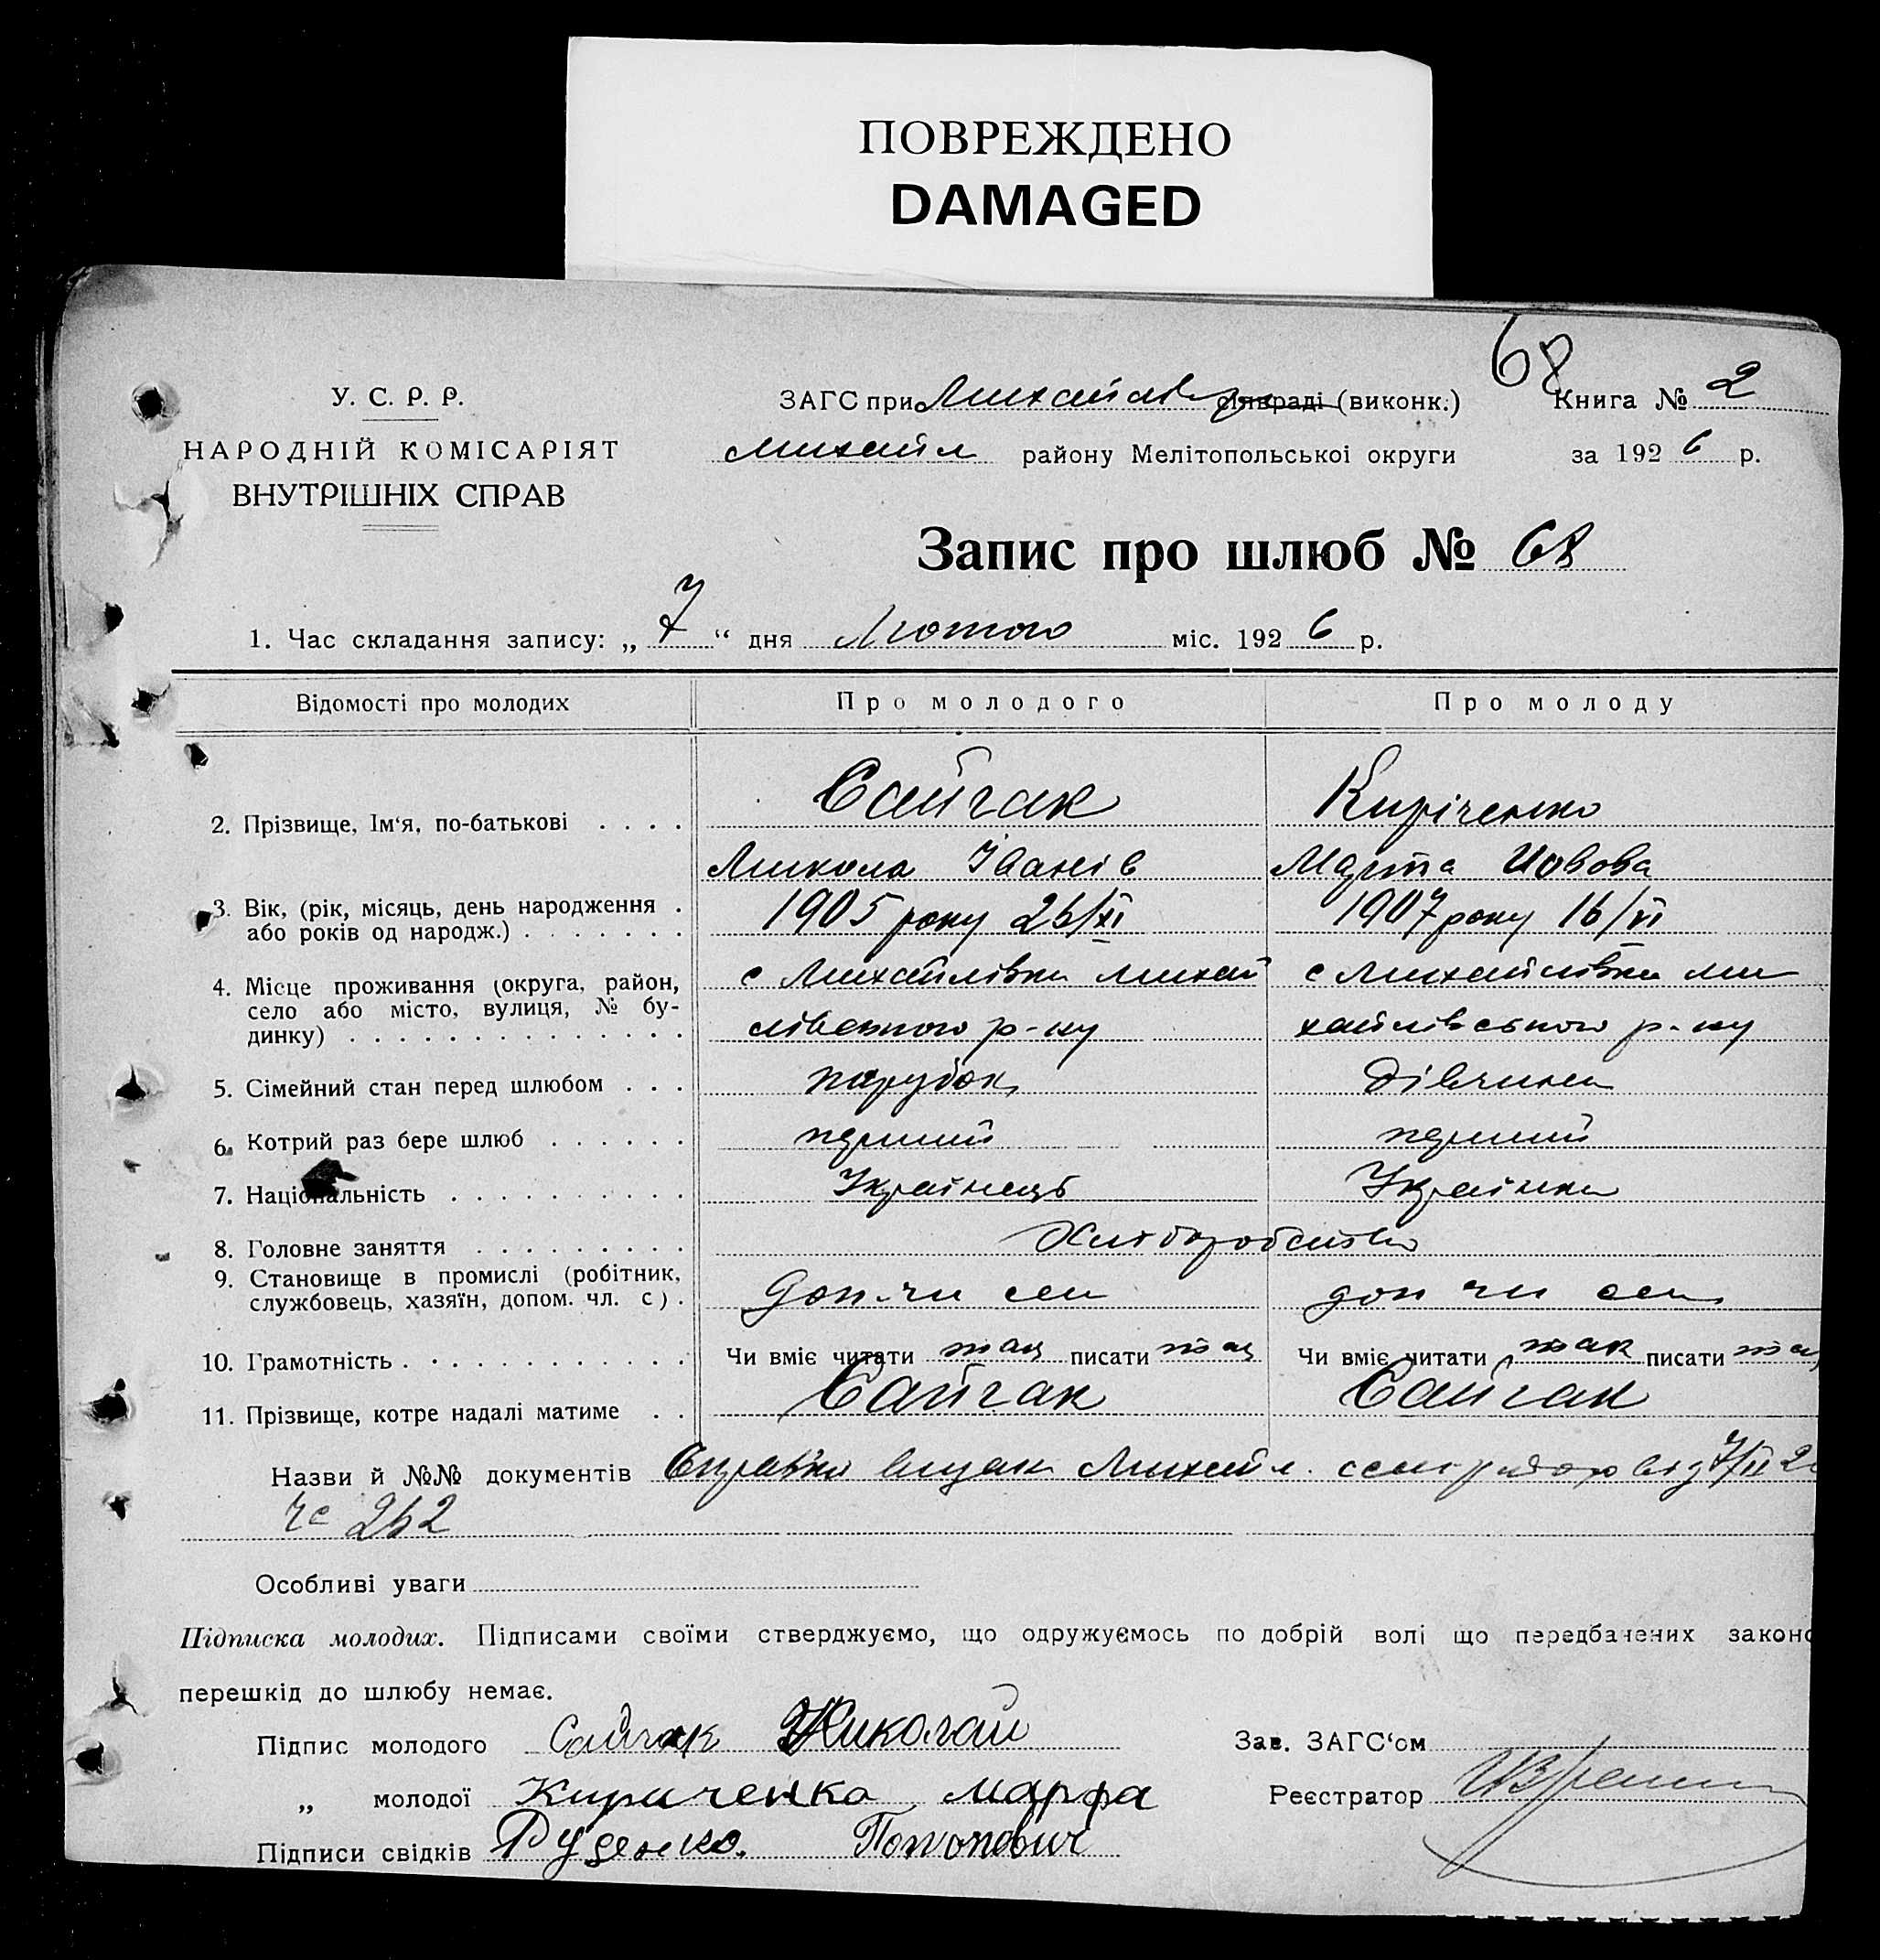 ПОВРЕЖДЕНО
DAMAGED
68
У. С. Р. Р.
ЗАГС при Михайлів сільраді (виконк.) Книга № 2
НАРОДНІЙ КОМІСАРІЯТ
Михайл району Мелітопольської округи за 1926 р.
ВНУТРІШНІХ СПРАВ
Запис про шлюб № 68
1. Час складання запису: „7“ дня Лютого міс. 1926 р.
Відомості про молодих Про молодого Про молоду
Сайгак Киріченко
2. Прізвище, Ім‘я, по-батькові . . . .
Микола Іванів Марта Иовова
3. Вік, (рік, місяць, день народження . 1905 року 26/XI 1907 року 16/VI
або років од народж.) . . . . . . .
4. Місце проживання (округа, район, с Михайлівки Михай с Михайлівки Ми
село або місто, вулиця, № бу-
динку) . . . . . . . . . . . . . . лівського р-ну хайлівського р-ну
5. Сімейний стан перед шлюбом . . . парубок дівчина
6. Котрий раз бере шлюб . . . . . . перший перший
7. Національність . . . . . . . . . . Українець Українка
8. Головне заняття . . . . . . . . . Хліборобство
9. Становище в промислі (робітник,
службовець, хазяїн, допом. чл. с) . доп. чл сем доп чл сем
10. Грамотність . . . . . . . . . . . . Чи вміє читати так писати так Чи вміє читати так писати так
11. Прізвище, котре надалі матиме . . Сайгак Сайгак
Назви й №№ документів Справка видан Михайл. від 7/II 2
262
Особливі уваги
Підписка молодих. Підписами своїми стверджуємо, що одружуємось по добрій волі що передбачених законо
перешкід до шлюбу немає.
Підпис молодого Сайгак Николай Зав. ЗАГС‘ом
„ молодої Кириченко Марфа Реєстратор
Підписи свідків Руденко. Попович